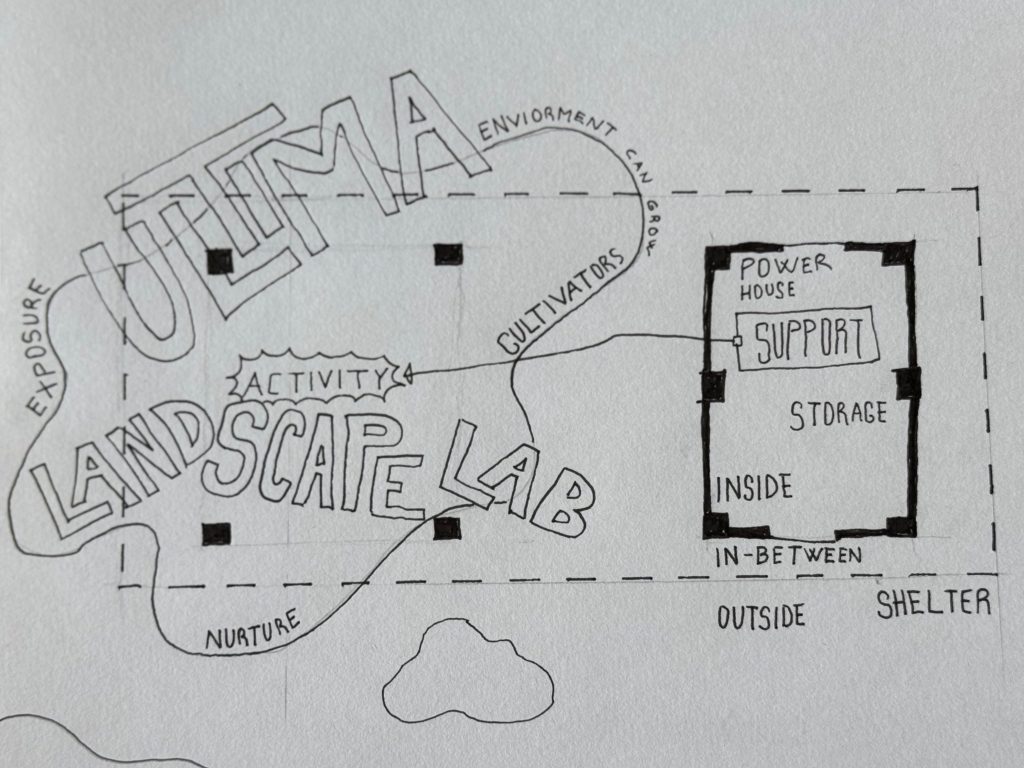 ULTIMA
ENVIORMENT CAN GROW
CULTIVATORS
EXPOSURE
ACTIVITY
LANDSCAPE LAB
NURTURE
POWER
HOUSE
SUPPORT
STORAGE
INSIDE
IN-BETWEEN
OUTSIDE
SHELTER